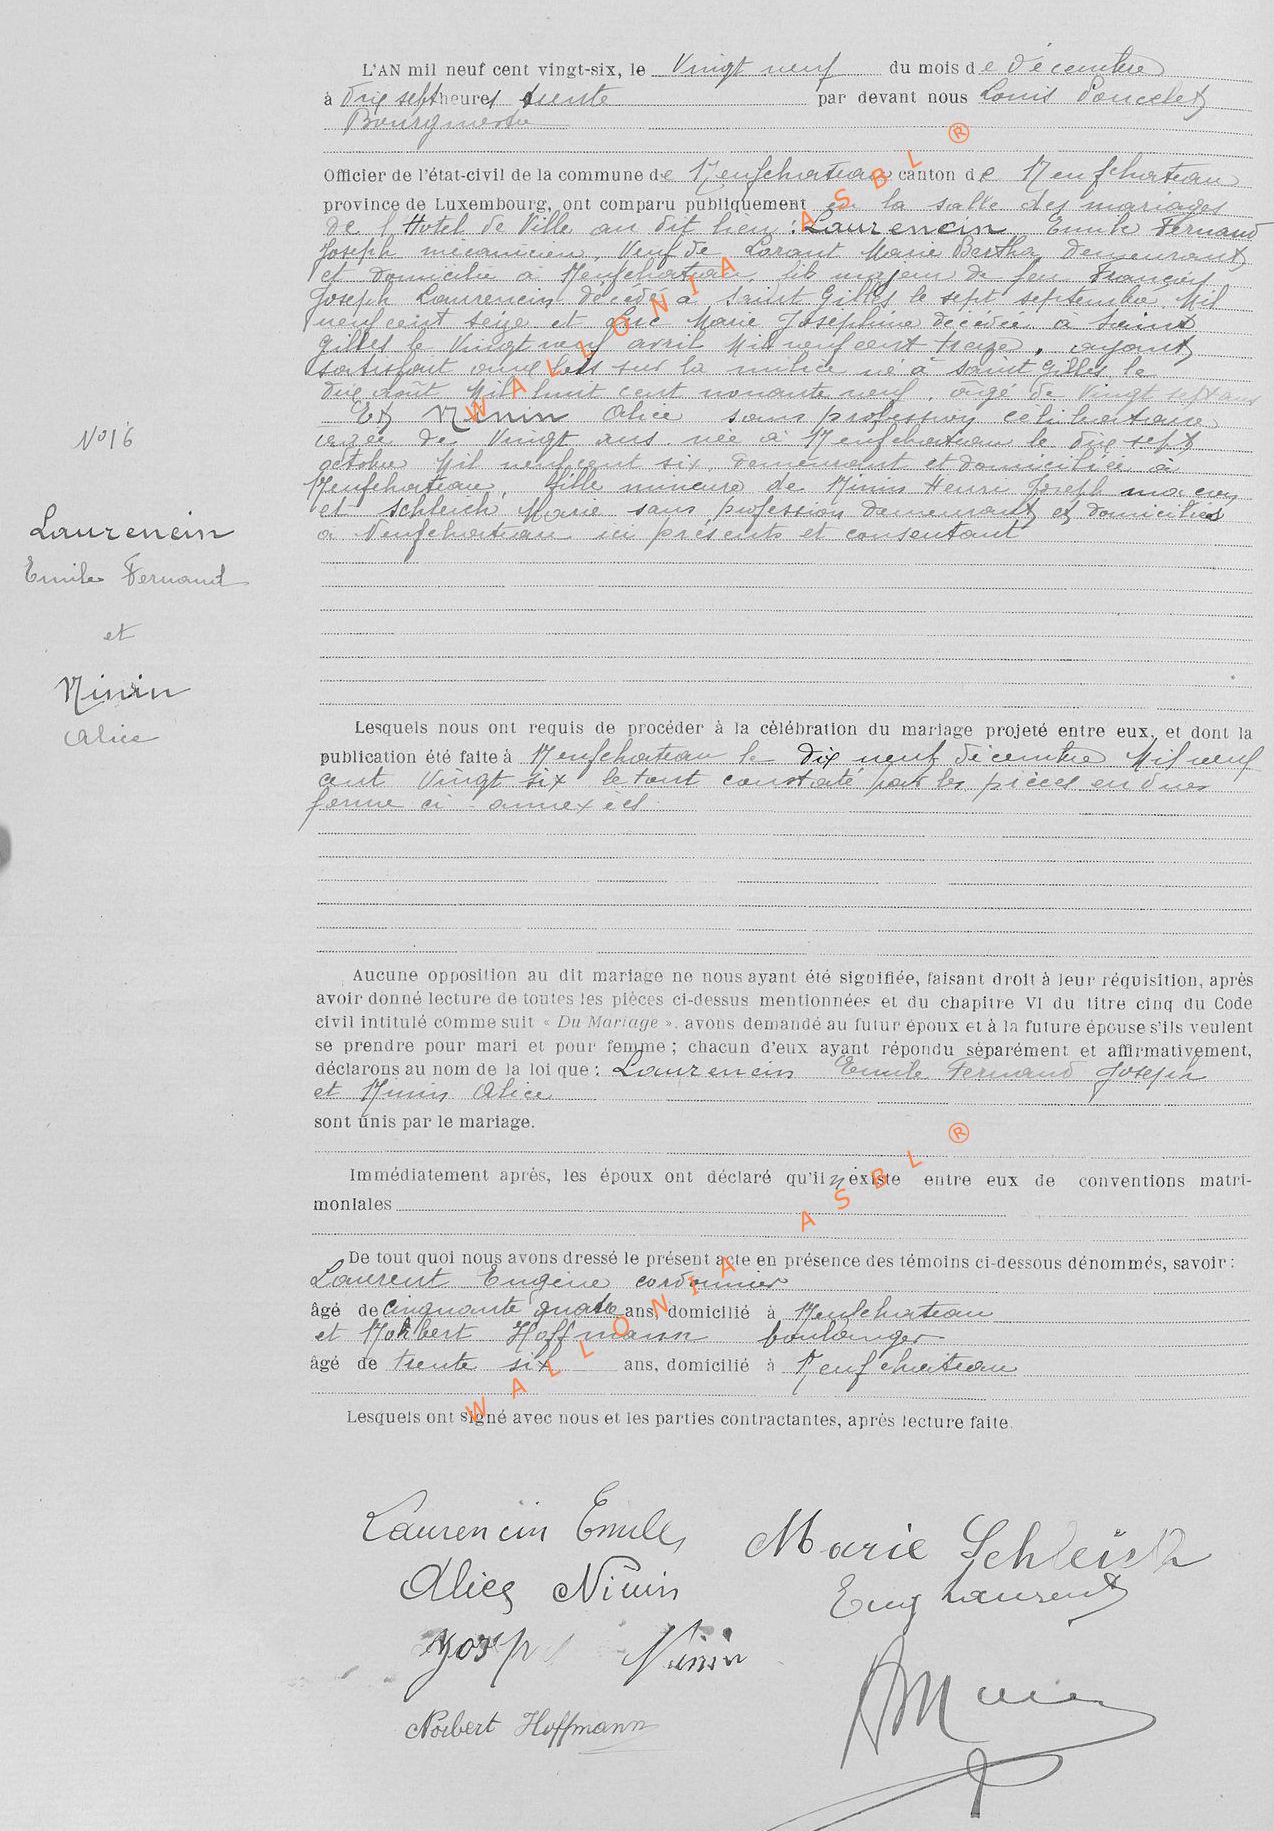 L'AN mil neuf cent vingt-six, le Vingt neuf du mois de décembre
à dix sept heures trente par devant nous Louis Poncelet
Bourgmestre
Officier de l'état-civil de la commune de Neufchateau canton de Neufchateau
province de Luxembourg, ont comparu publiquement en la salle des mariages
de l'Hotel de Ville au dit lieu : Laurencin Emile Fernand
Joseph mécanicien, Veuf de Lorant Marie Bertha demeurant
et domicilié à Neufchateau, fils majeur de feu François
Joseph Laurencin décédé à Saint Gilles le sept septembre Mil
neuf cent seize et Marie Josephine décédée à Saint
Gilles le Vingt neuf avril Mil neuf cent treize, ayant
satisfait aux lois sur la milice né à Saint Gilles le
dix août Mil huit cent nonante neuf, âgé de Vingt sept ans
Et Ninin Alice sans profession celibataire
agée de Vingt ans née à Neufchateau le dix sept
octobre Mil neuf cent six, demeurant et domiciliée à
Neufchateau, fille mineure de Ninin Henri Joseph maçon
et Schleich Marie sans profession demeurant et domiciliés
à Neufchateau ici présents et consentant
No 16
Laurencin
Emile Fernand
et
Ninin
Alice
Lesquels nous ont requis de procéder à la célébration du mariage projeté entre eux, et dont la
publication été faite à Neufchateau le dix neuf décembre Mil neuf
cent Vingt six le tout constaté par les pièces en dues
forme ci annexées
Aucune opposition au dit mariage ne nous ayant été signifiée, faisant droit à leur réquisition, après
avoir donné lecture de toutes les pièces ci-dessus mentionnées et du chapitre VI du titre cinq du Code
civil intitulé comme suit « Du Mariage ». avons demandé au futur époux et à la future épouse s'ils veulent
se prendre pour mari et pour femme ; chacun d'eux ayant répondu séparément et affirmativement,
déclarons au nom de la loi que : Laurencin Emile Fernand Joseph
et Ninin Alice
sont unis par le mariage.
Immédiatement après, les époux ont déclaré qu'il n'existe entre eux de conventions matri-
moniales
De tout quoi nous avons dressé le présent acte en présence des témoins ci-dessous dénommés, savoir :
Laurent Eugène cordonnier
âgé de cinquante quatre ans, domicilié à Neufchateau
et Norbert Hoffmann boulanger
âgé de trente six ans, domicilié à Neufchateau
Lesquels ont signé avec nous et les parties contractantes, après lecture faite.
Laurencin Emile Marie Schleich
Alice Ninin Eug Laurent
Ninin
Norbert Hoffmann
WALLONIA ASBL ®
WALLONIA ASBL ®